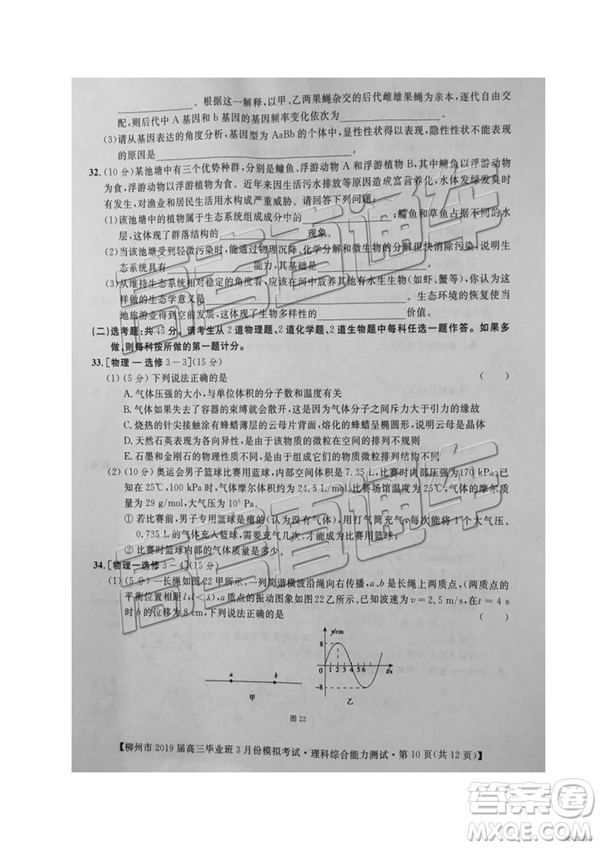 ______________。根据这一解释，以甲、乙两果蝇杂交的后代雌雄果蝇为亲本，逐代自由交
配，则后代中A基因和b基因的基因频率变化依次为______________。
(3)请从基因表达的角度分析，基因型为AaBb的个体中，显性性状能表现，隐性性状不能表现
的原因是______________。
32.(10分)某池塘中有三个优势种群，分别是鳙鱼、浮游动物A、浮游植物B，其中鳙鱼以浮游动物
为食，浮游动物以浮游植物为食。近年来因生活污水排放等造成富营养化，导致绿藻爆发等
对渔业养殖和居民生活用水造成严重威胁。请回答下列问题：
(1)该池塘中的植物属于生态系统组成成分中的______________；鳙鱼和草鱼占据不同的水
层，这体现了群落的______________现象。
(2)该池塘受到轻微污染时，能通过物理沉降、化学分解和微生物的分解很快消除污染，说明生
态系统具有______________能力，其基础是______________。
态地旅游业得到空前的发展，这体现了生物多样性的______________价值。
(二)选考题：共45分。请考生从2道物理题、2道化学题、2道生物题中每科任选一题作答。如果多
做，则每科按所做的第一题计分。
33.[物理—选修3-3](15分)
(1)(5分)下列说法正确的是 ( )
A.气体的压强与单位体积的分子数和温度有关
B.气体如果失去了容器的束缚就会散开，这是因为气体分子之间存在斥力的缘故
C.烧热的针尖接触涂有蜂蜡薄层的云母片背面，熔化的蜂蜡呈椭圆形，说明蜂蜡是晶体
D.天然石英表现为各向异性，是由于该物质的微粒在空间的排列不规则
E.石墨和金刚石的物理性质不同，是由于组成它们的物质微粒排列结构不同
(2)(10分)奥运会男子篮球比赛用篮球，内部空间的容积是7.35 L，比赛时内部压强为170 kPa。已知
在25℃，100 kPa时，气体摩尔体积约为24.5 L/mol。比赛场馆温度为25℃，空气的摩尔质
量为29 g/mol，大气压为1 atm，
①若比赛前，男子专用篮球是瘪的(没有一点儿气体)，用打气筒充气，充气一次可将
0.735 L的气体充入篮球，需要充气几次，才能成为比赛用的篮球？
②比赛时篮球内部的空气质量是多少？
34.[物理—选修3-4](15分)
(1)(5分)一长绳如图22甲所示，一列简谐横波沿绳向右传播，a、b是绳上两质点(两质点的
平衡位置相距l，l＜λ)，质点a的振动图象如图22乙所示。已知波速v=2.5 m/s，在t=4 s
时b的位移为8 cm，下列说法正确的是 ( )
y/cm
8
0
-8
1 2 3 4 5 6
t/s
a
b
甲
乙
图22
【柳州市2019届高三毕业班3月份模拟考试·理科综合能力测试·第10页(共12页)】
高考直通车
高考直通车
答案圈
MXQE.COM